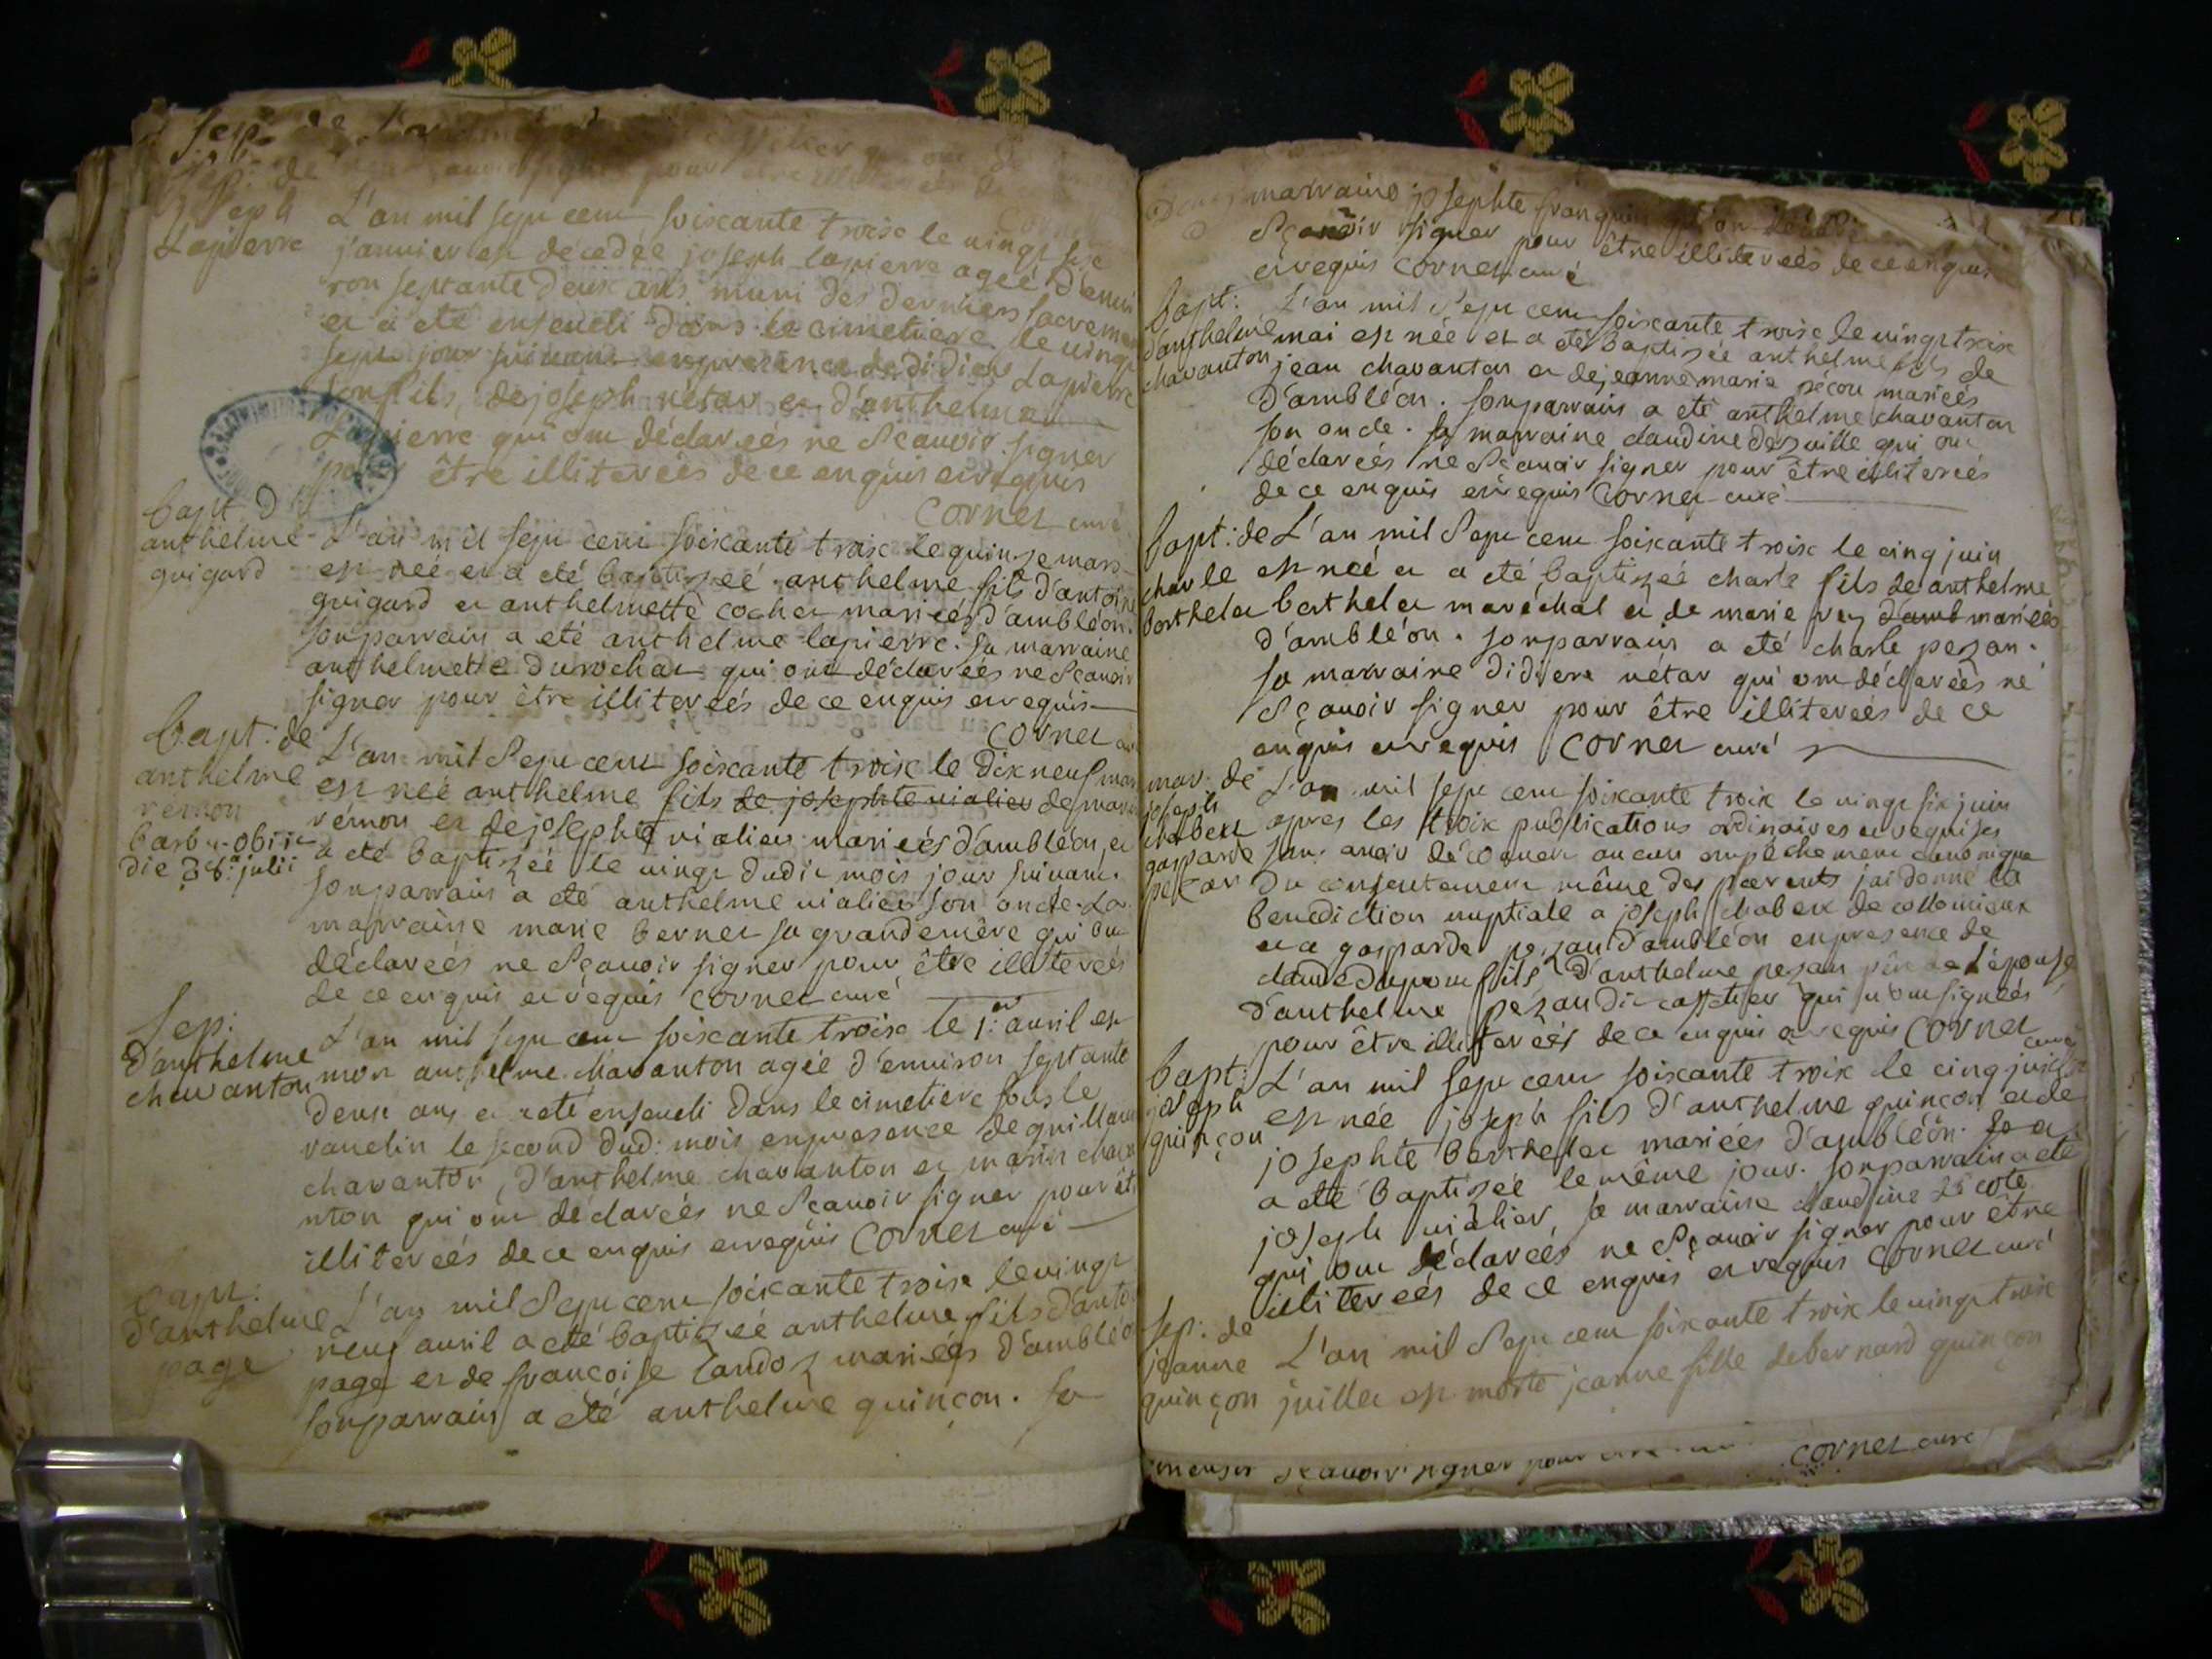 Sep. de
Sep: de
joseph
Lapierre
L'an mil sept cent soixante troix le vingt six
janvier est décedéé joseph lapierre ageé d'envi
ron septante deux ans muni des derniers sacremen
et a eté enseveli dans le cimetiere le vingt
sept jour suivant en presence de didier Lapierre
son fils, de joseph nétar et d'anthelme
Lapierre qui ont déclareés ne sçauoir signer
pour être illitereés de ce enquis et requis
Cornet curé
bapt. d'
anthelme
guigard
L'an mil sept cent soixante troix le quinze mars
est neé et a eté baptizeé anthelme fils d'antoine
guigard et anthelmette cochet marieés d'ambléon.
son parrain a eté anthelme lapierre. sa marraine
anthelmette durochat qui ont déclareés ne sçauoir
signer pour être illitereés de ce enquis et requis
Cornet
bapt: de
anthelme
vernon
obiit
die 28a julii
L'an mil sept cent soixante troix le dix neuf mars
est neé anthelme fils de josephte vialier de
vernon et de josephte vialier marieés d'ambléon, et
a eté baptizeé le vingt dudit mois jour suivant.
son parrain a eté anthelme vialier son oncle. La
marraine marie bernet sa grandemère qui ont
déclareés ne sçauoir signer pour être illitereés
de ce enquis et requis Cornet curé
Sep:
d'anthelme
chavanton
L'an mil sept cent soixante troix le 1er: avril est
mort anthelme chavanton ageé d'environ septante
deux ans et a eté enseveli dans le cimetiere sous le
vanelin le second dud: mois en presence de guillaume
chavanton, d'anthelme chavanton et marin chava
nton qui ont déclareés ne sçauoir signer pour êtr
illitereés de ce enquis et requis Cornet curé
bapt:
d'anthelme
page
L'an mil sept cent soixante troix le vingt
neuf avril a eté baptizeé anthelme fils d'anto
page et de françoise landoz marieés d'ambléo
son parrain a eté anthelme quinçon. sa
marraine josephte
sçauoir signer pour être illitereés de ce enquis
et requis Cornet curé
bapt:
d'anthelme
chavanton
L'an mil sept cent soixante troix le vingt troix
mai est neé et a eté baptizeé anthelme fils de
jean chavanton et de jeanne marie récou marieés
d'ambléon. son parrain a eté anthelme chavanton
son oncle. sa marraine claudine dezuille qui ont
déclareés ne sçauoir signer pour être illitereés
de ce enquis et requis Cornet curé
bapt: de
charle
berthelet
L'an mil sept cent soixante troix le cinq juin
est neé et a eté baptizeé charle fils de anthelme
berthelet maréchal et de marie rey d'amb marieés
d'ambléon. son parrain a eté charle pezan.
sa marraine didiere nétar qui ont déclareés ne
sçauoir signer pour être illitereés de ce
enquis et requis Cornet curé
mar. de
joseph
chaberx
gasparde
pezan
L'an mil sept cent soixante troix le vingt six juin
apres les troix publications ordinaires et requises
sans avoir découvert aucun empêchement canonique
du consentement même des parents j'ai donné la
benediction nuptiale a joseph chaberx de collomieux
et a gasparde pezan d'ambléon en presence de
claude dupont fils d'anthelme pezan père de l'épouse
d'anthelme pezan dit cassetier qui n'ont signeés
pour être illitereés de ce enquis et requis Cornet
curé
bapt:
joseph
quinçon
L'an mil sept cent soixante troix le cinq juillet
est neé joseph fils d'anthelme quinçon et de
josephte berthelet marieés d'ambléon. et
a eté baptizeé le même jour. son parrain a eté
joseph vialier, sa marraine claudine
qui ont déclareés ne sçauoir signer pour être
illitereés de ce enquis et requis Cornet curé
Sep: de
jeanne
quinçon
L'an mil sept cent soixante troix le vingt troix
juillet est morte jeanne fille de bernard quinçon
sçauoir signer pour
Cornet curé